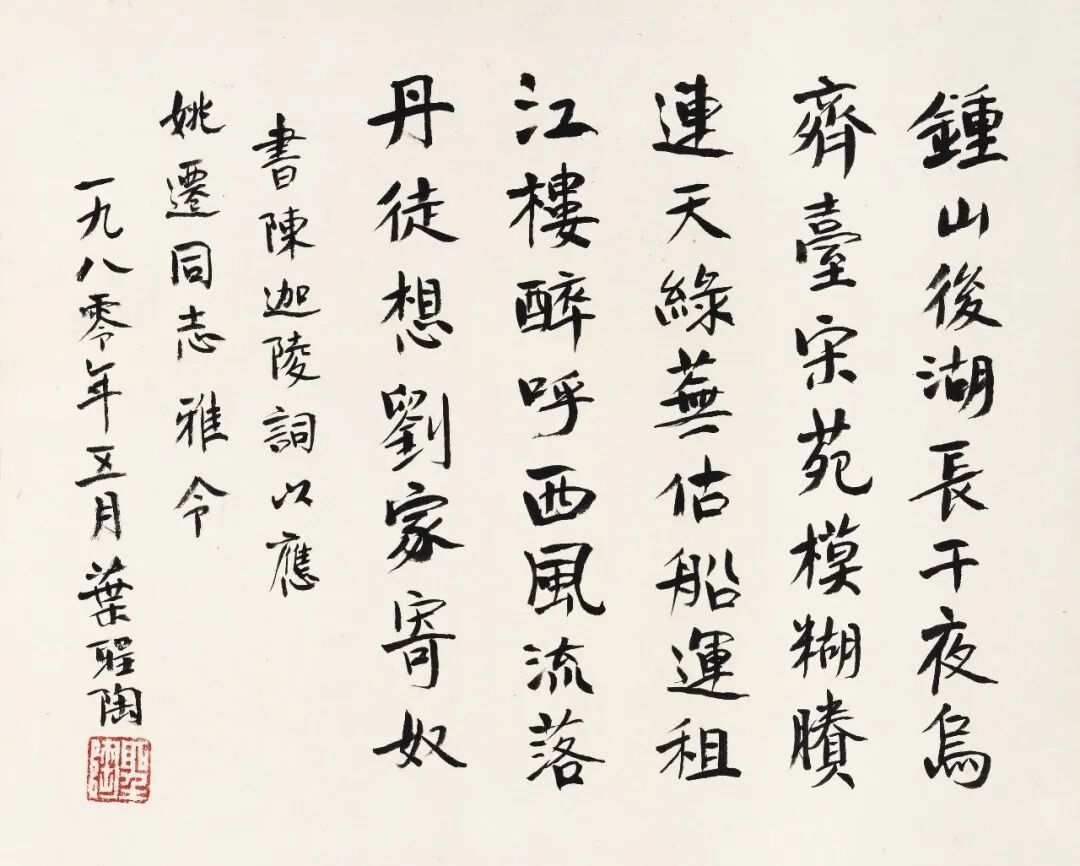 鍾山後湖長干夜烏
齊臺宋苑模糊賸
連天綠蕪估船運租
江樓醉呼西風流落
丹徒想劉家寄奴
書陳迦陵詞以應
姚遷同志雅令
一九八零年五月葉聖陶
聖陶